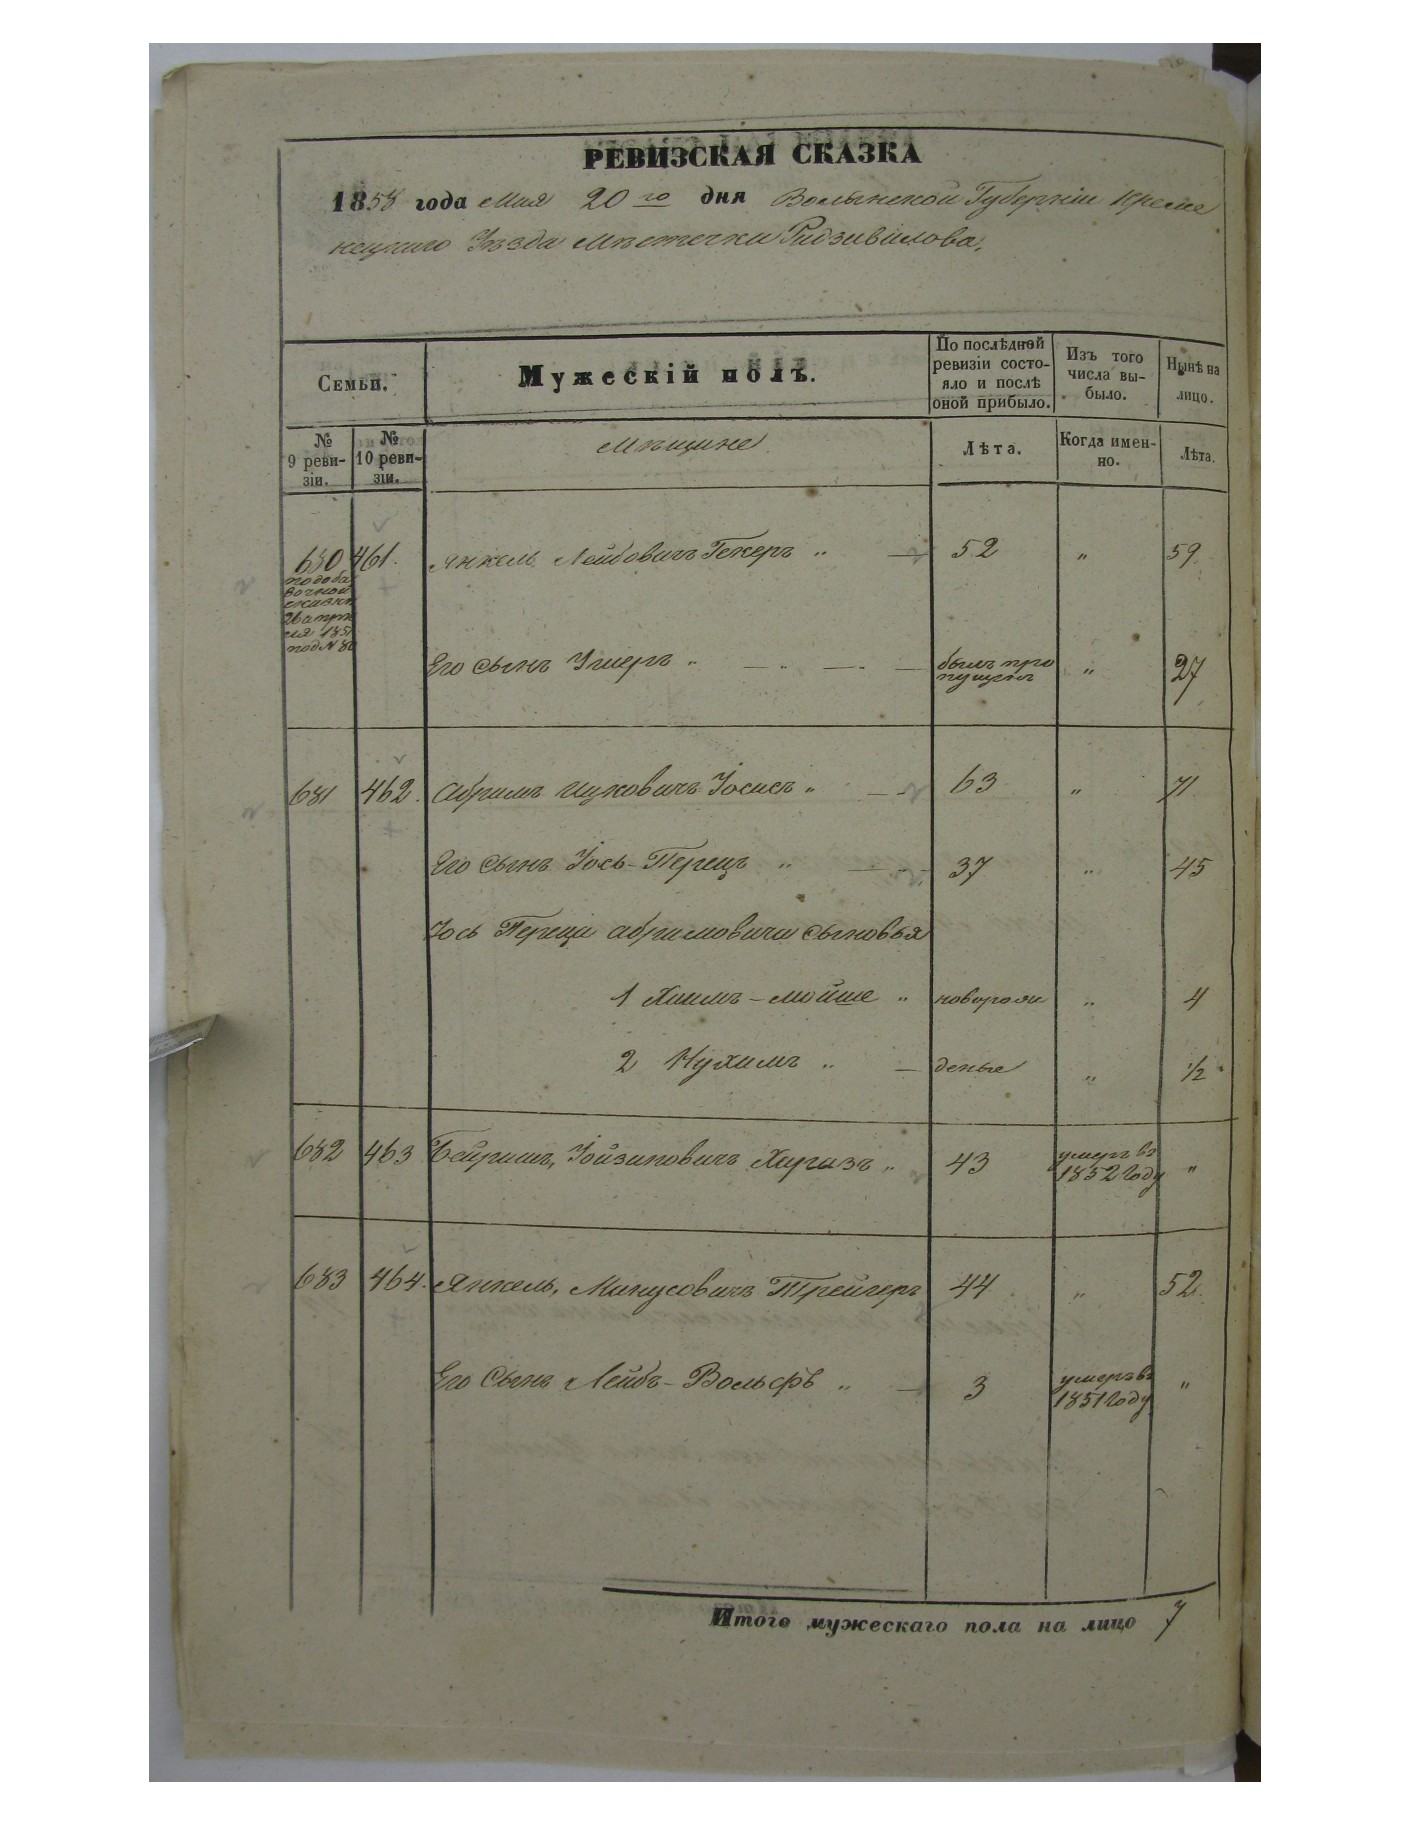 РЕВИЗСКАЯ СКАЗКА
1858 года Мая 20го дня Волынской Губерніи Креме
нецкаго Уѣзда Мѣстечка Радзивилова.
Семьи.
Мужескій полъ.
По послѣдней ревизіи состояло и послѣ оной прибыло.
Изъ того числа выбыло.
Нынѣ на лицо.
№ 9 ревизіи.
№ 10 ревизіи.
Мѣщане
Лѣта.
Когда именно.
Лѣта.
680 461. Янкель Лейбовичъ Гекеръ „ 52 „ 59
по доба
вочной
сказки
26 апрѣ
ля 1851
под № 80
Его сынъ Умеръ „ былъ про
пущенъ „ 27
681 462. Абрамъ Ицковичъ Іосисъ „ 63 „ 71
Его сынъ Іось-Перецъ „ 37 „ 45
Іось Переца Абрамовича сыновья
1 Хаимъ-Мойше „ новорож „ 4
2 Нухимъ „ деные „ 1/2
682 463 Бейришъ, Іойзиповичъ Харазъ „ 43 умеръ въ
1852 Году „
683 464. Янкель, Манусовичъ Трейгеръ 44 „ 52
Его Сынъ Лейбъ-Вольфъ „ 3 умеръ въ
1851 Году „
Итого мужескаго пола на лицо 7